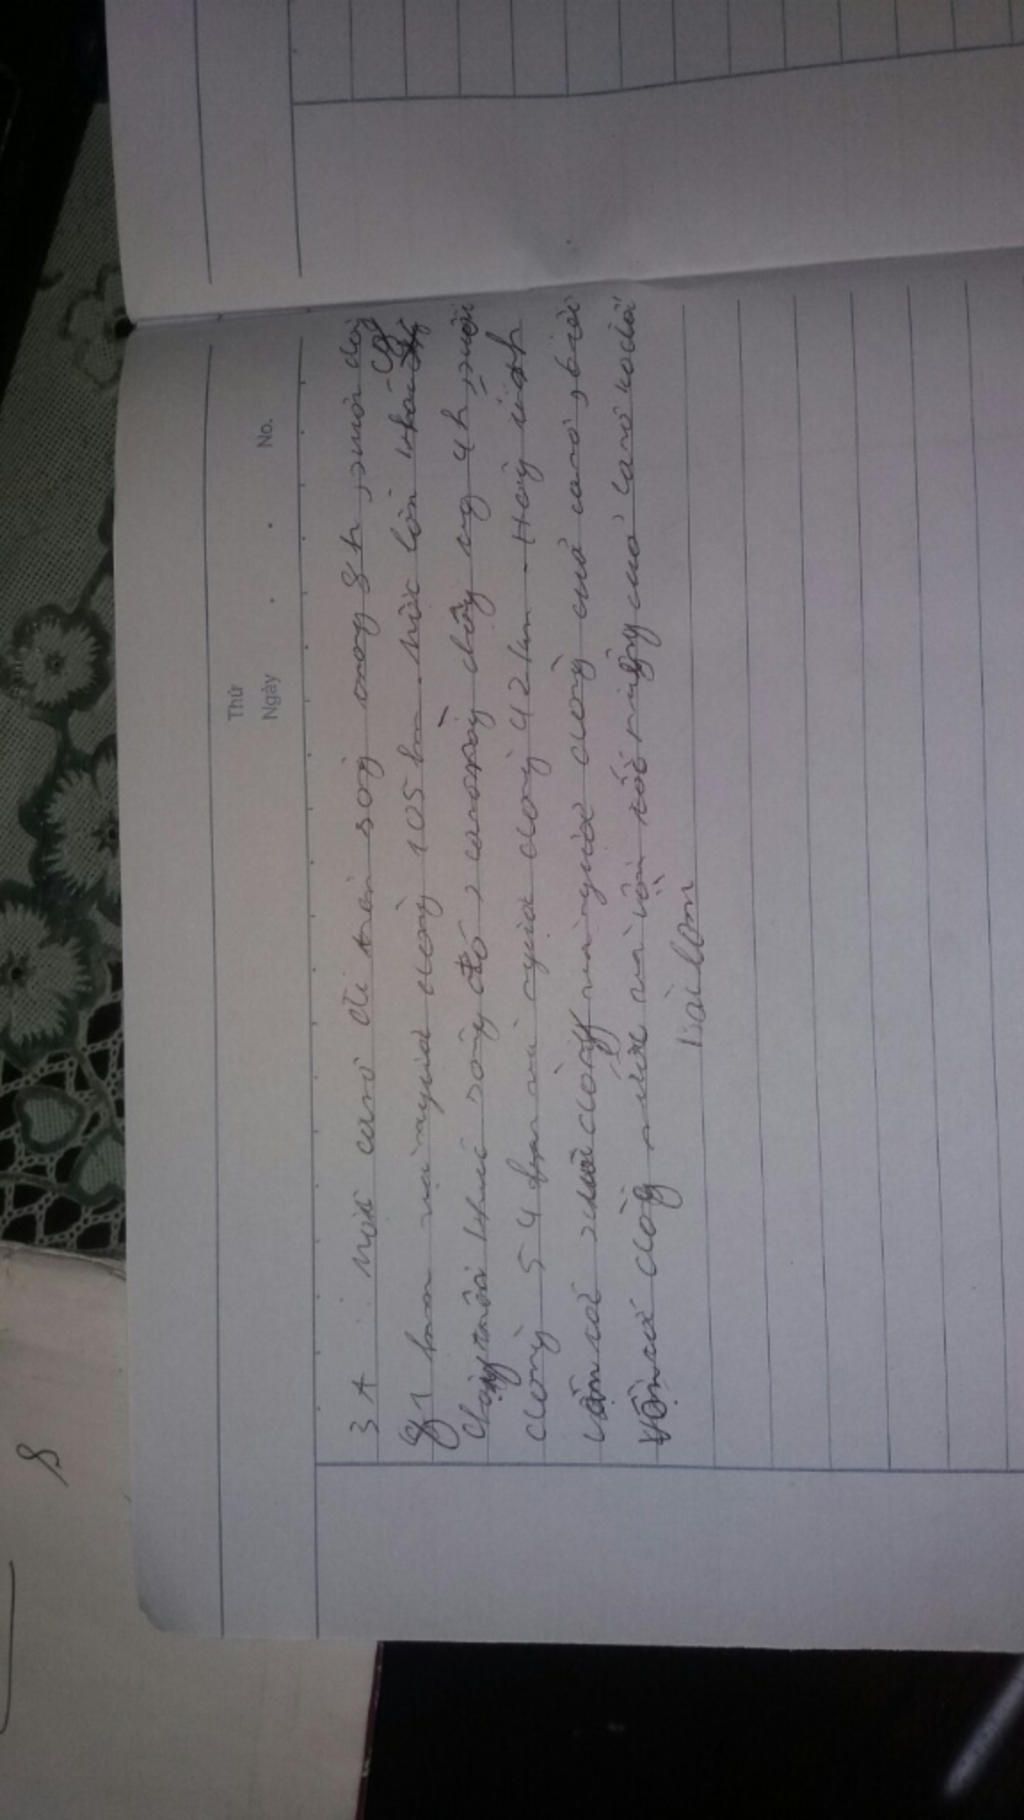 Thứ
Ngày . . No.
3A: Một canô đi trên sông trong 8h, xuôi dòng
81 km và ngược dòng 105 km. Một lần khác cg
chạy trên khúc sông đó, canô này chạy trong 4h, xuôi
dòng 54 km và ngược dòng 42 km. Hãy tính
vận tốc xuôi dòng và ngược dòng của canô, biết
vận tốc dòng nước và vận tốc riêng của canô ko đổi
Bài làm